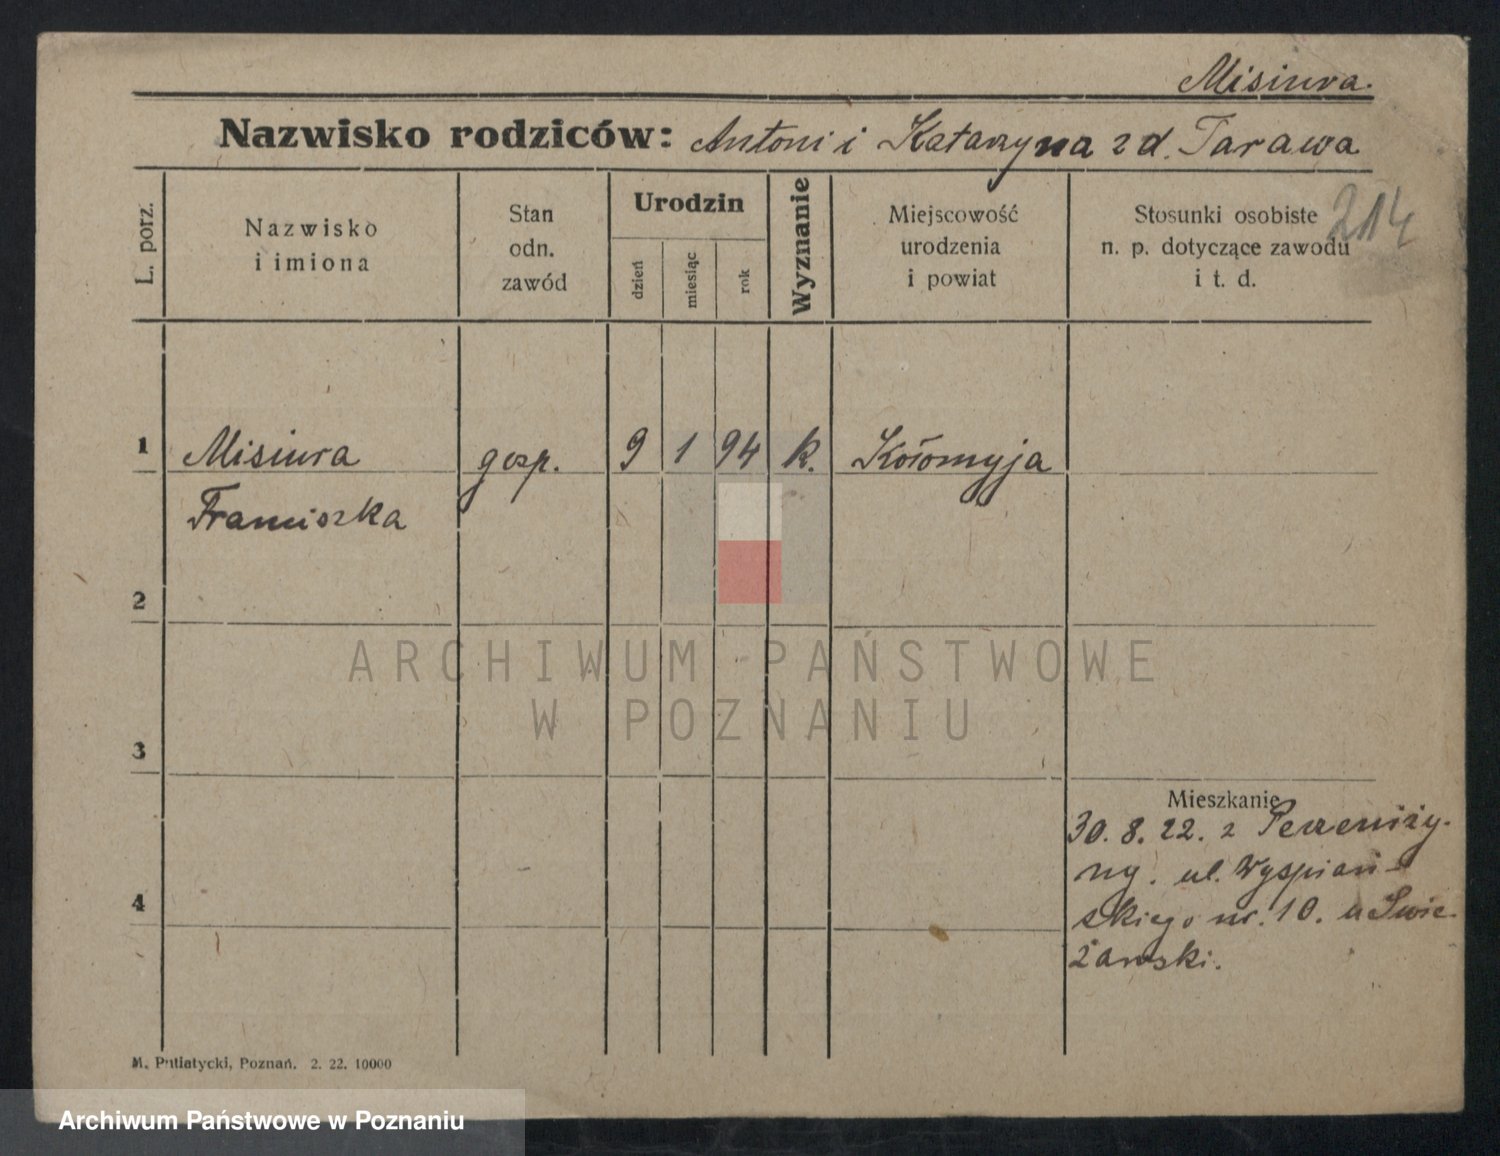 Misiura.
Nazwisko rodziców: Antoni i Katarzyna z d. Tarawa
L. porz.
Nazwisko
i imiona
Stan
odn.
zawód
Urodzin
dzień
miesiąc
rok
Wyznanie
Miejscowość
urodzenia
i powiat
Stosunki osobiste
n. p. dotyczące zawodu
i t. d.
214
1 Misiura gosp. 9 1 94 k. Kołomyja
Franciszka
2
3
4
ARCHIWUM PAŃSTWOWE
W POZNANIU
Mieszkanie
30. 8. 22. z
ul. Wyspiań-
skiego nr. 10. u Swie-
żawski.
M. Putiatycki, Poznań. 2. 22. 10000
Archiwum Państwowe w Poznaniu